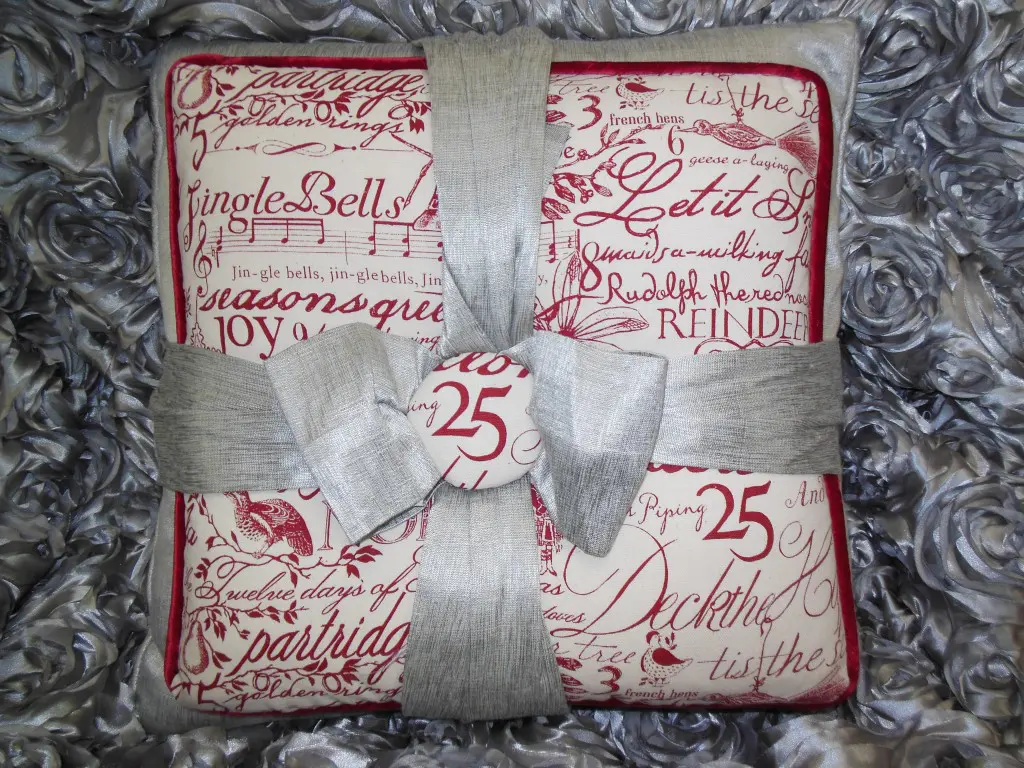 partridge
5 golden rings
tree
3 french hens
tis the se
6 geese a-laying
Jingle Bells
Let it Sn
Jin-gle bells, jin-gle bells, Jin
y,
8 maids a-milking
fa
seasons gre
Rudolph the red nos
JOY
REINDEER
25
ing
Piping
25
And
Twelve days of
as
Deck the H
partridg
tree
tis the s
5 golden rings
3 french hens